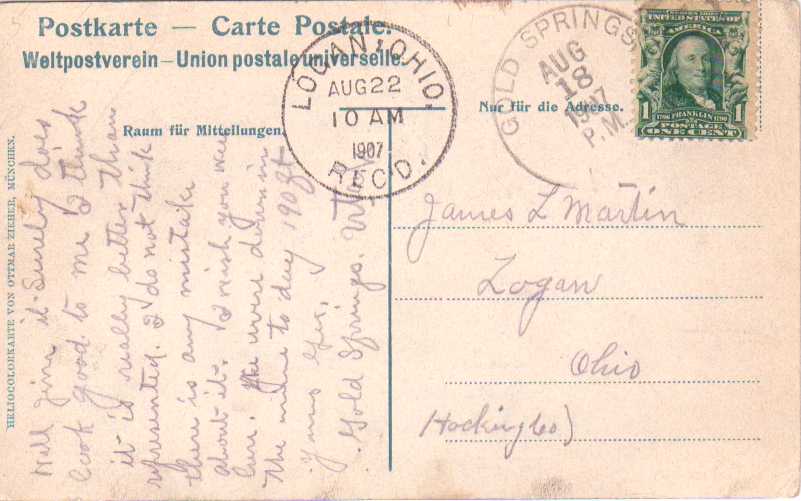 Postkarte — Carte Postale.
Weltpostverein — Union postale universelle.
Raum für Mitteilungen.
Nur für die Adresse.
HELIOCOLORKARTE VON OTTMAR ZIEHER, MÜNCHEN.
LOGAN, OHIO.
AUG 22
10 AM
1907
REC'D.
GOLD SPRINGS,
AUG
18
1907
P.M.
UNITED STATES OF
AMERICA
1 1790 FRANKLIN 1790 1
POSTAGE
ONE CENT
Well Jim it Surely does
look good to me I think
it is really better than
represented. I do not think
there is any mistake
about it. I wish you were
here. We were down in
the mine to day 190 ft
Yours
Gold Springs.
James L Martin
Logan
Ohio
Hocking Co)